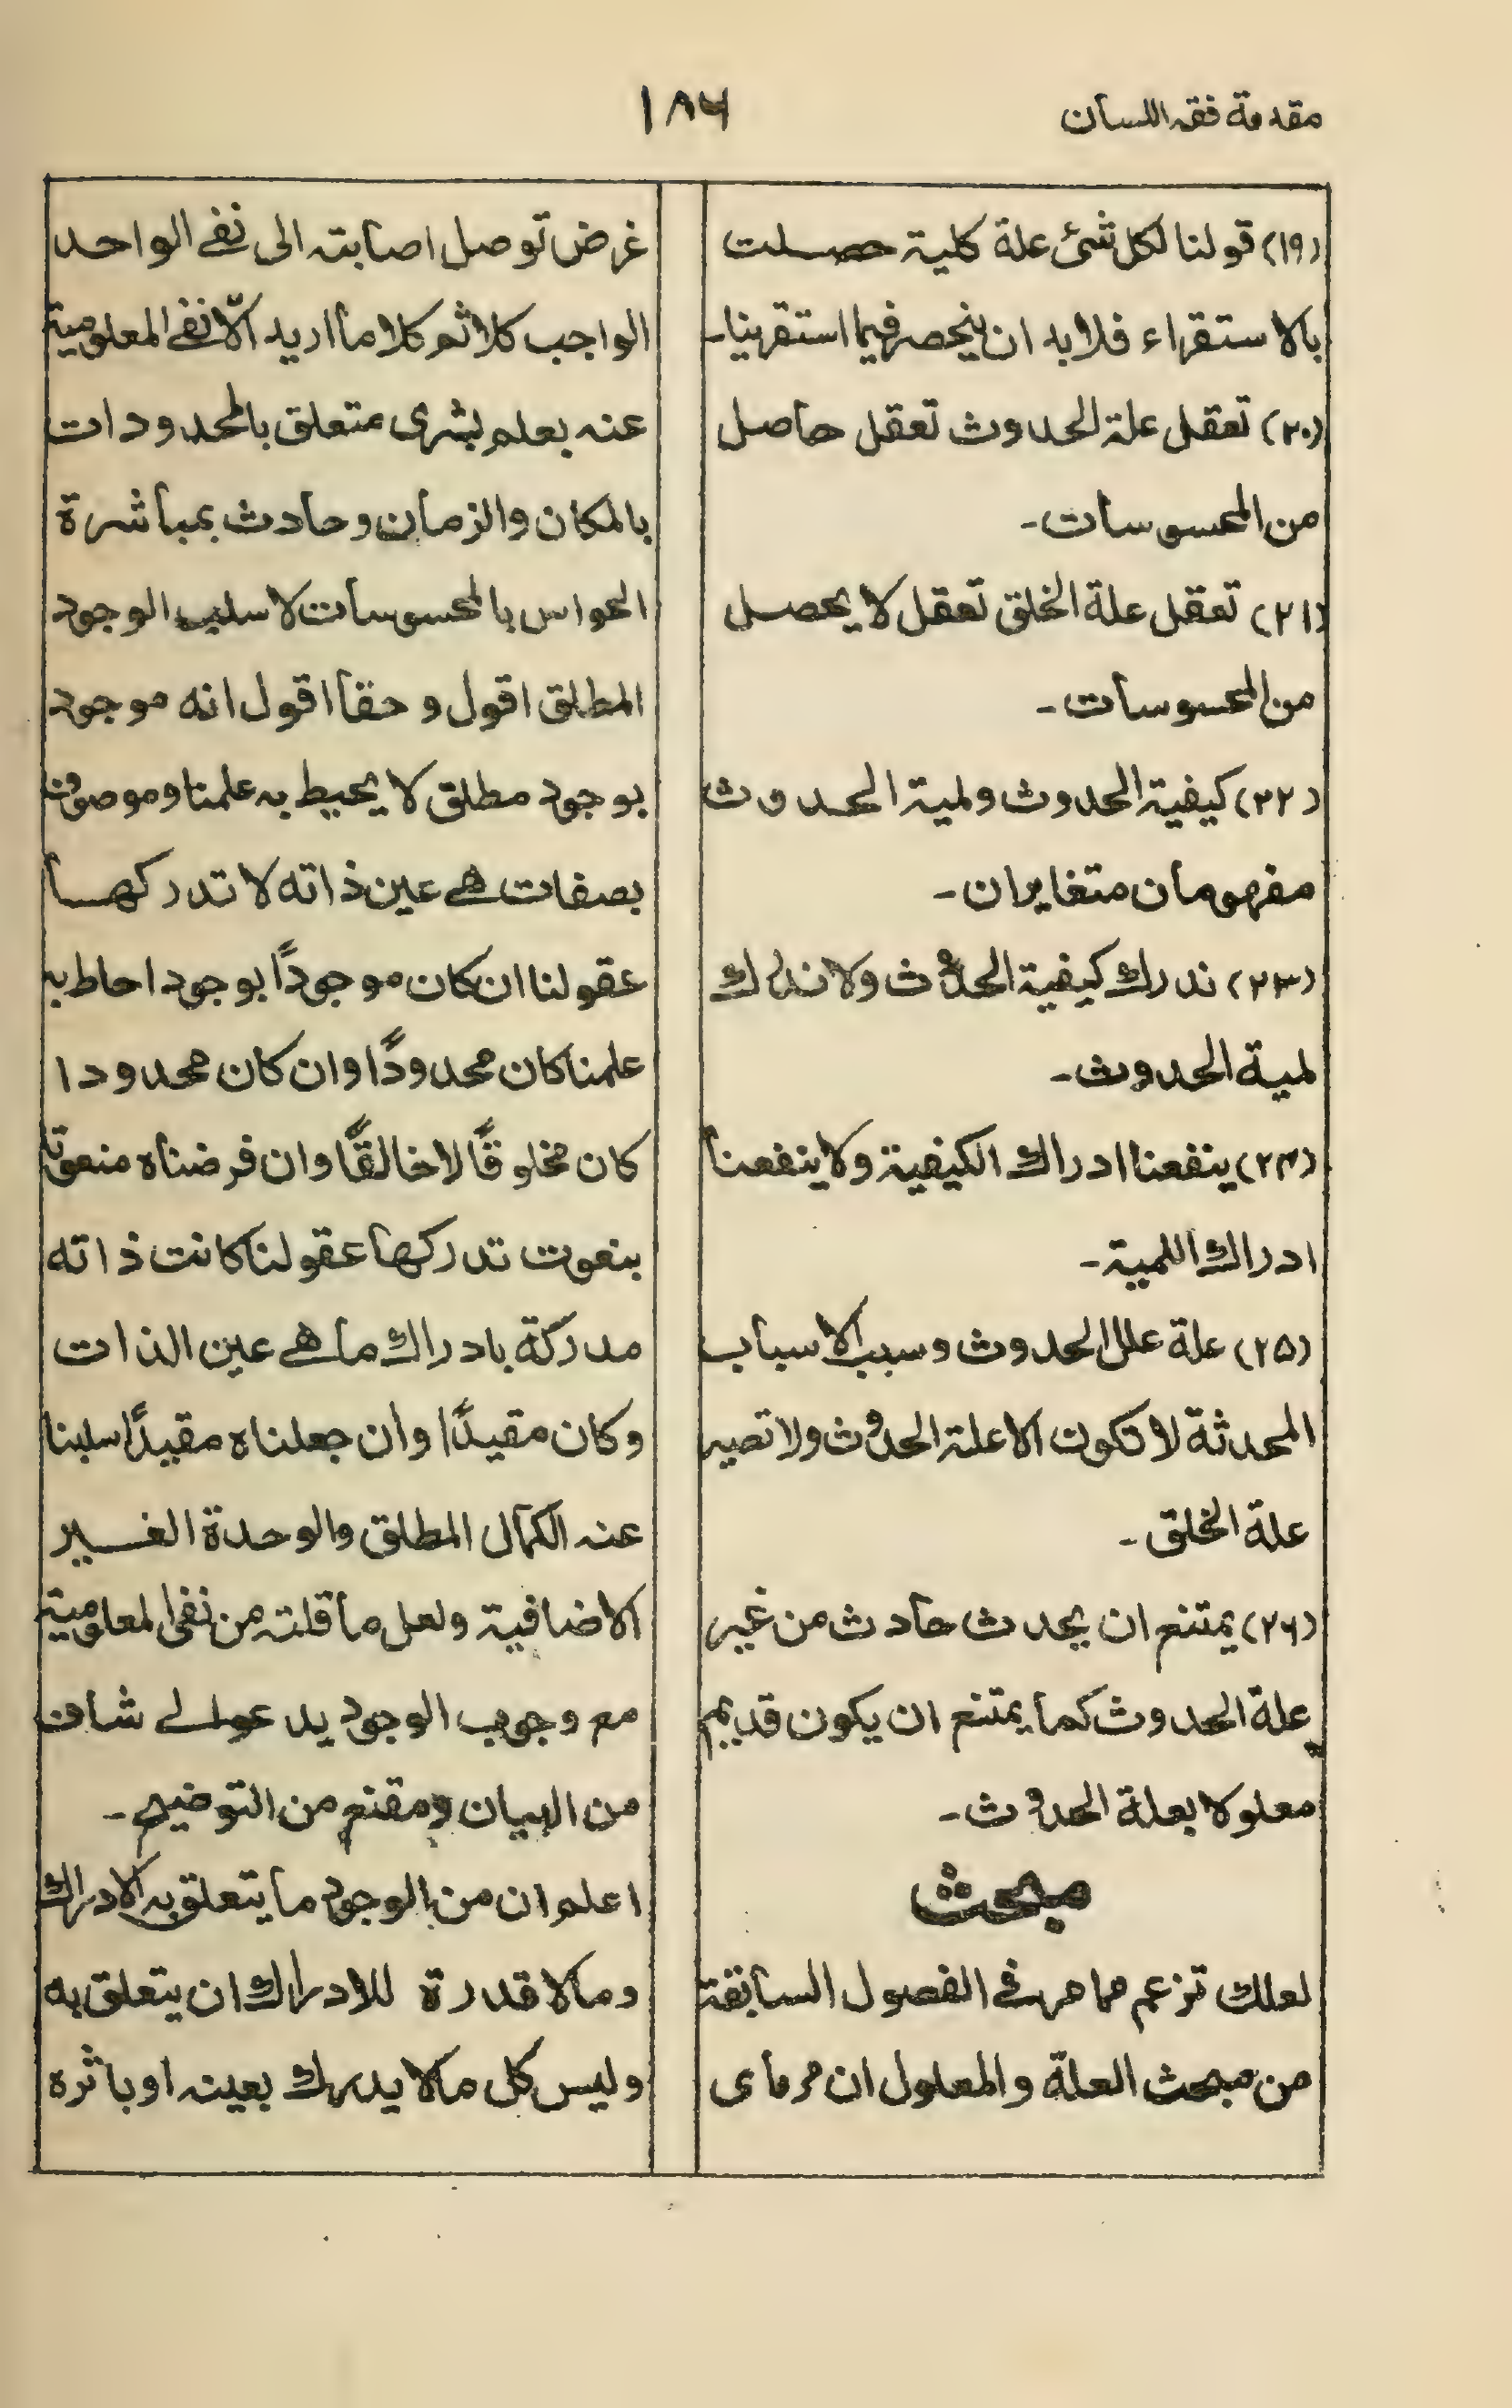 مقدمة فقه اللسان
١٨٦
(١٩) قولنا لكل شئ علة كلية حصلت
بالاستقراء فلابد ان ينحصر فيما استقرينا۔
(٢٠) تعقل علة الحدوث تعقل حاصل
من المحسوسات۔
(٢١) تعقل علة الخلق تعقل لا يحصل
من المحسوسات۔
(٢٢) كيفية الحدوث ولمية الحدوث
مفهومان متغايران۔
(٢٣) ندرك كيفية الحدوث ولا ندرك
لمية الحدوث۔
(٢٤) ينفعنا ادراك الكيفية ولا ينفعنا
ادراك اللمية۔
(٢٥) علة علل الحدوث وسبب الاسباب
المحدثة لا تكون الا علة الحدوث ولا تصير
علة الخلق۔
(٢٦) يمتنع ان يحدث حادث من غير
علة الحدوث كما يمتنع ان يكون قديم
معلولا بعلة الحدوث۔
مبحث
لعلك تزعم مما مر في الفصول السابقة
من مبحث العلة والمعلول ان مرماى
غرض توصل اصابته الى نفے الواحد
الواجب كلا ثم كلا ما اريد الّا نفے المعلومية
عنه بعلم بشرى متعلق بالمحدودات
بالمكان والزمان وحادث بمباشرة
الحواس بالمحسوسات لا سلب الوجود
المطلق اقول وحقا اقول انه موجود
بوجود مطلق لا يحيط به علمنا وموصوف
بصفات هے عين ذاته لا تدركها
عقولنا ان كان موجودًا بوجود احاط به
علمنا كان محدودًا وان كان محدودا
كان مخلوقًا لا خالقًا وان فرضناه منعوتا
بنعوت تدركها عقولنا كانت ذاته
مدركة بادراك ما هے عين الذات
وكان مقيدًا وان جعلناه مقيدًا سلبنا
عنه الكمال المطلق والوحدة الغير
الاضافية ولعل ما قلته من نفى المعلومية
مع وجوب الوجود يدعو لے شاف
من البيان ومقنع من التوضيح۔
اعلم ان من الوجود ما يتعلق به الادراك
وما لا قدرة للادراك ان يتعلق به
وليس كل ما لا يدرك بعينه او باثره